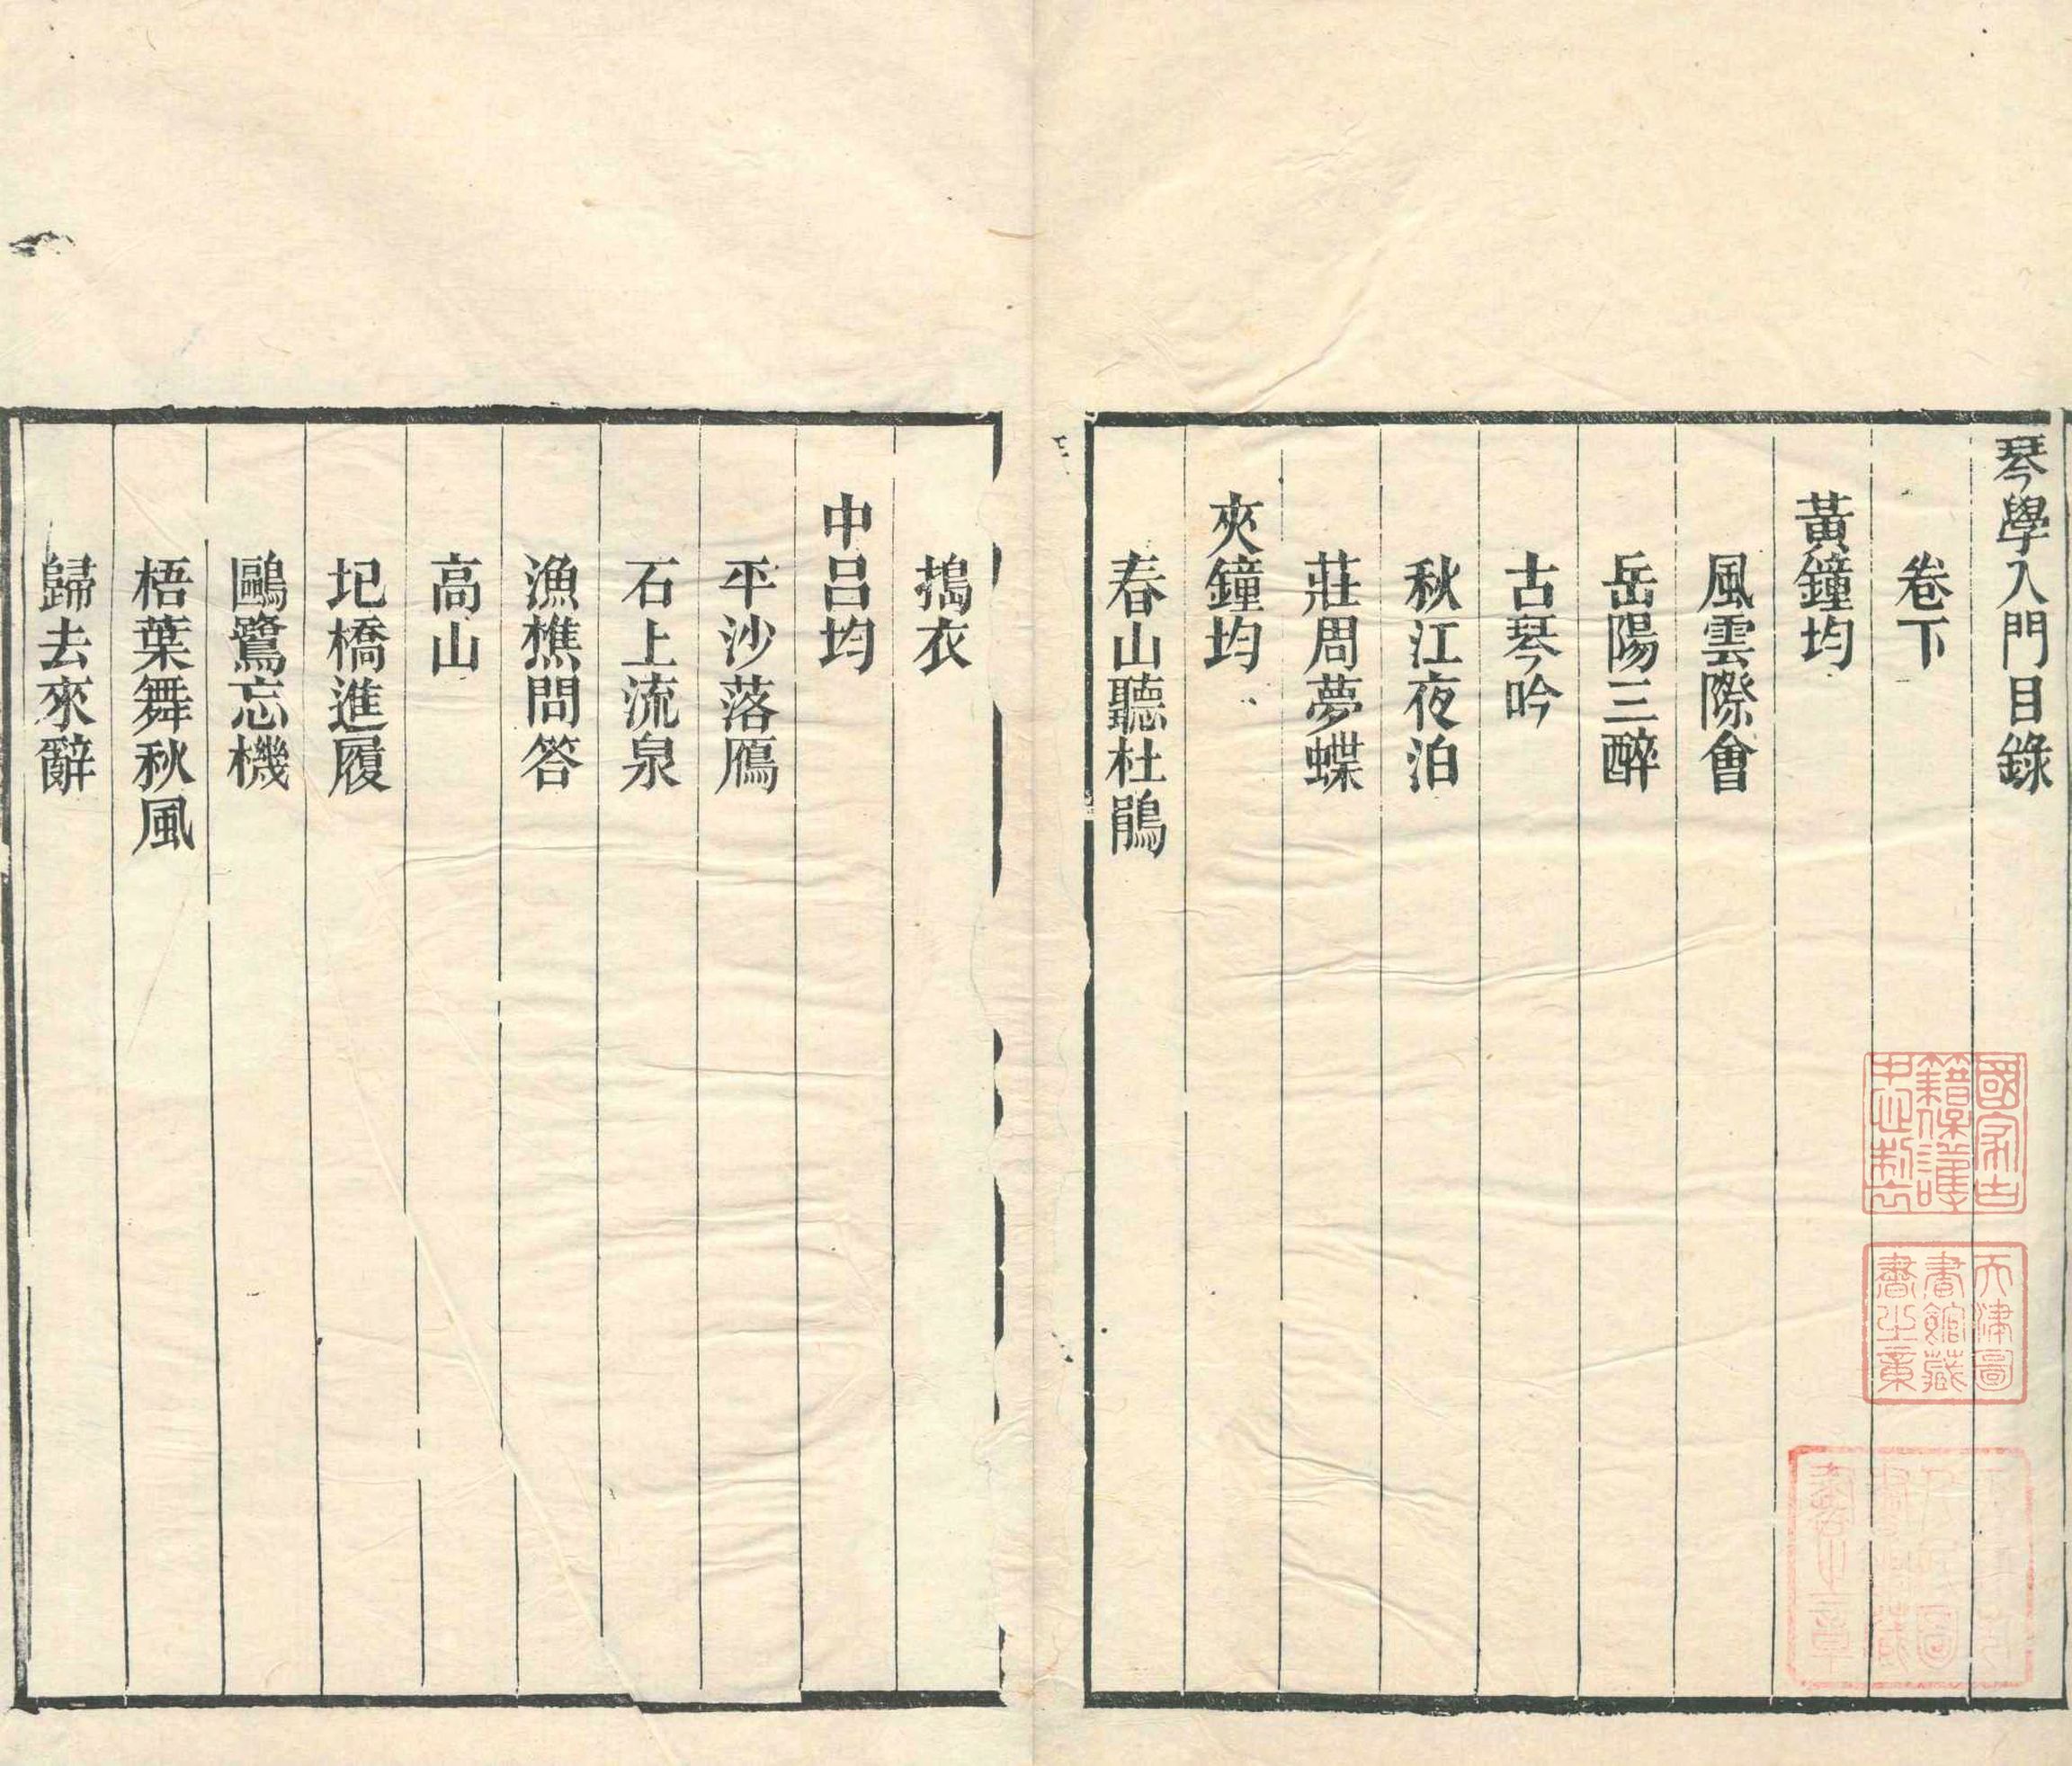 琴學入門目錄
卷下
黃鐘均
風雲際會
岳陽三醉
古琴吟
秋江夜泊
莊周夢蝶
夾鐘均
春山聽杜鵑
搗衣
中呂均
平沙落鴈
石上流泉
漁樵問答
高山
圯橋進履
鷗鷺忘機
梧葉舞秋風
歸去來辭
國家古
籍保護
中心制
天津圖
書館藏
書之章